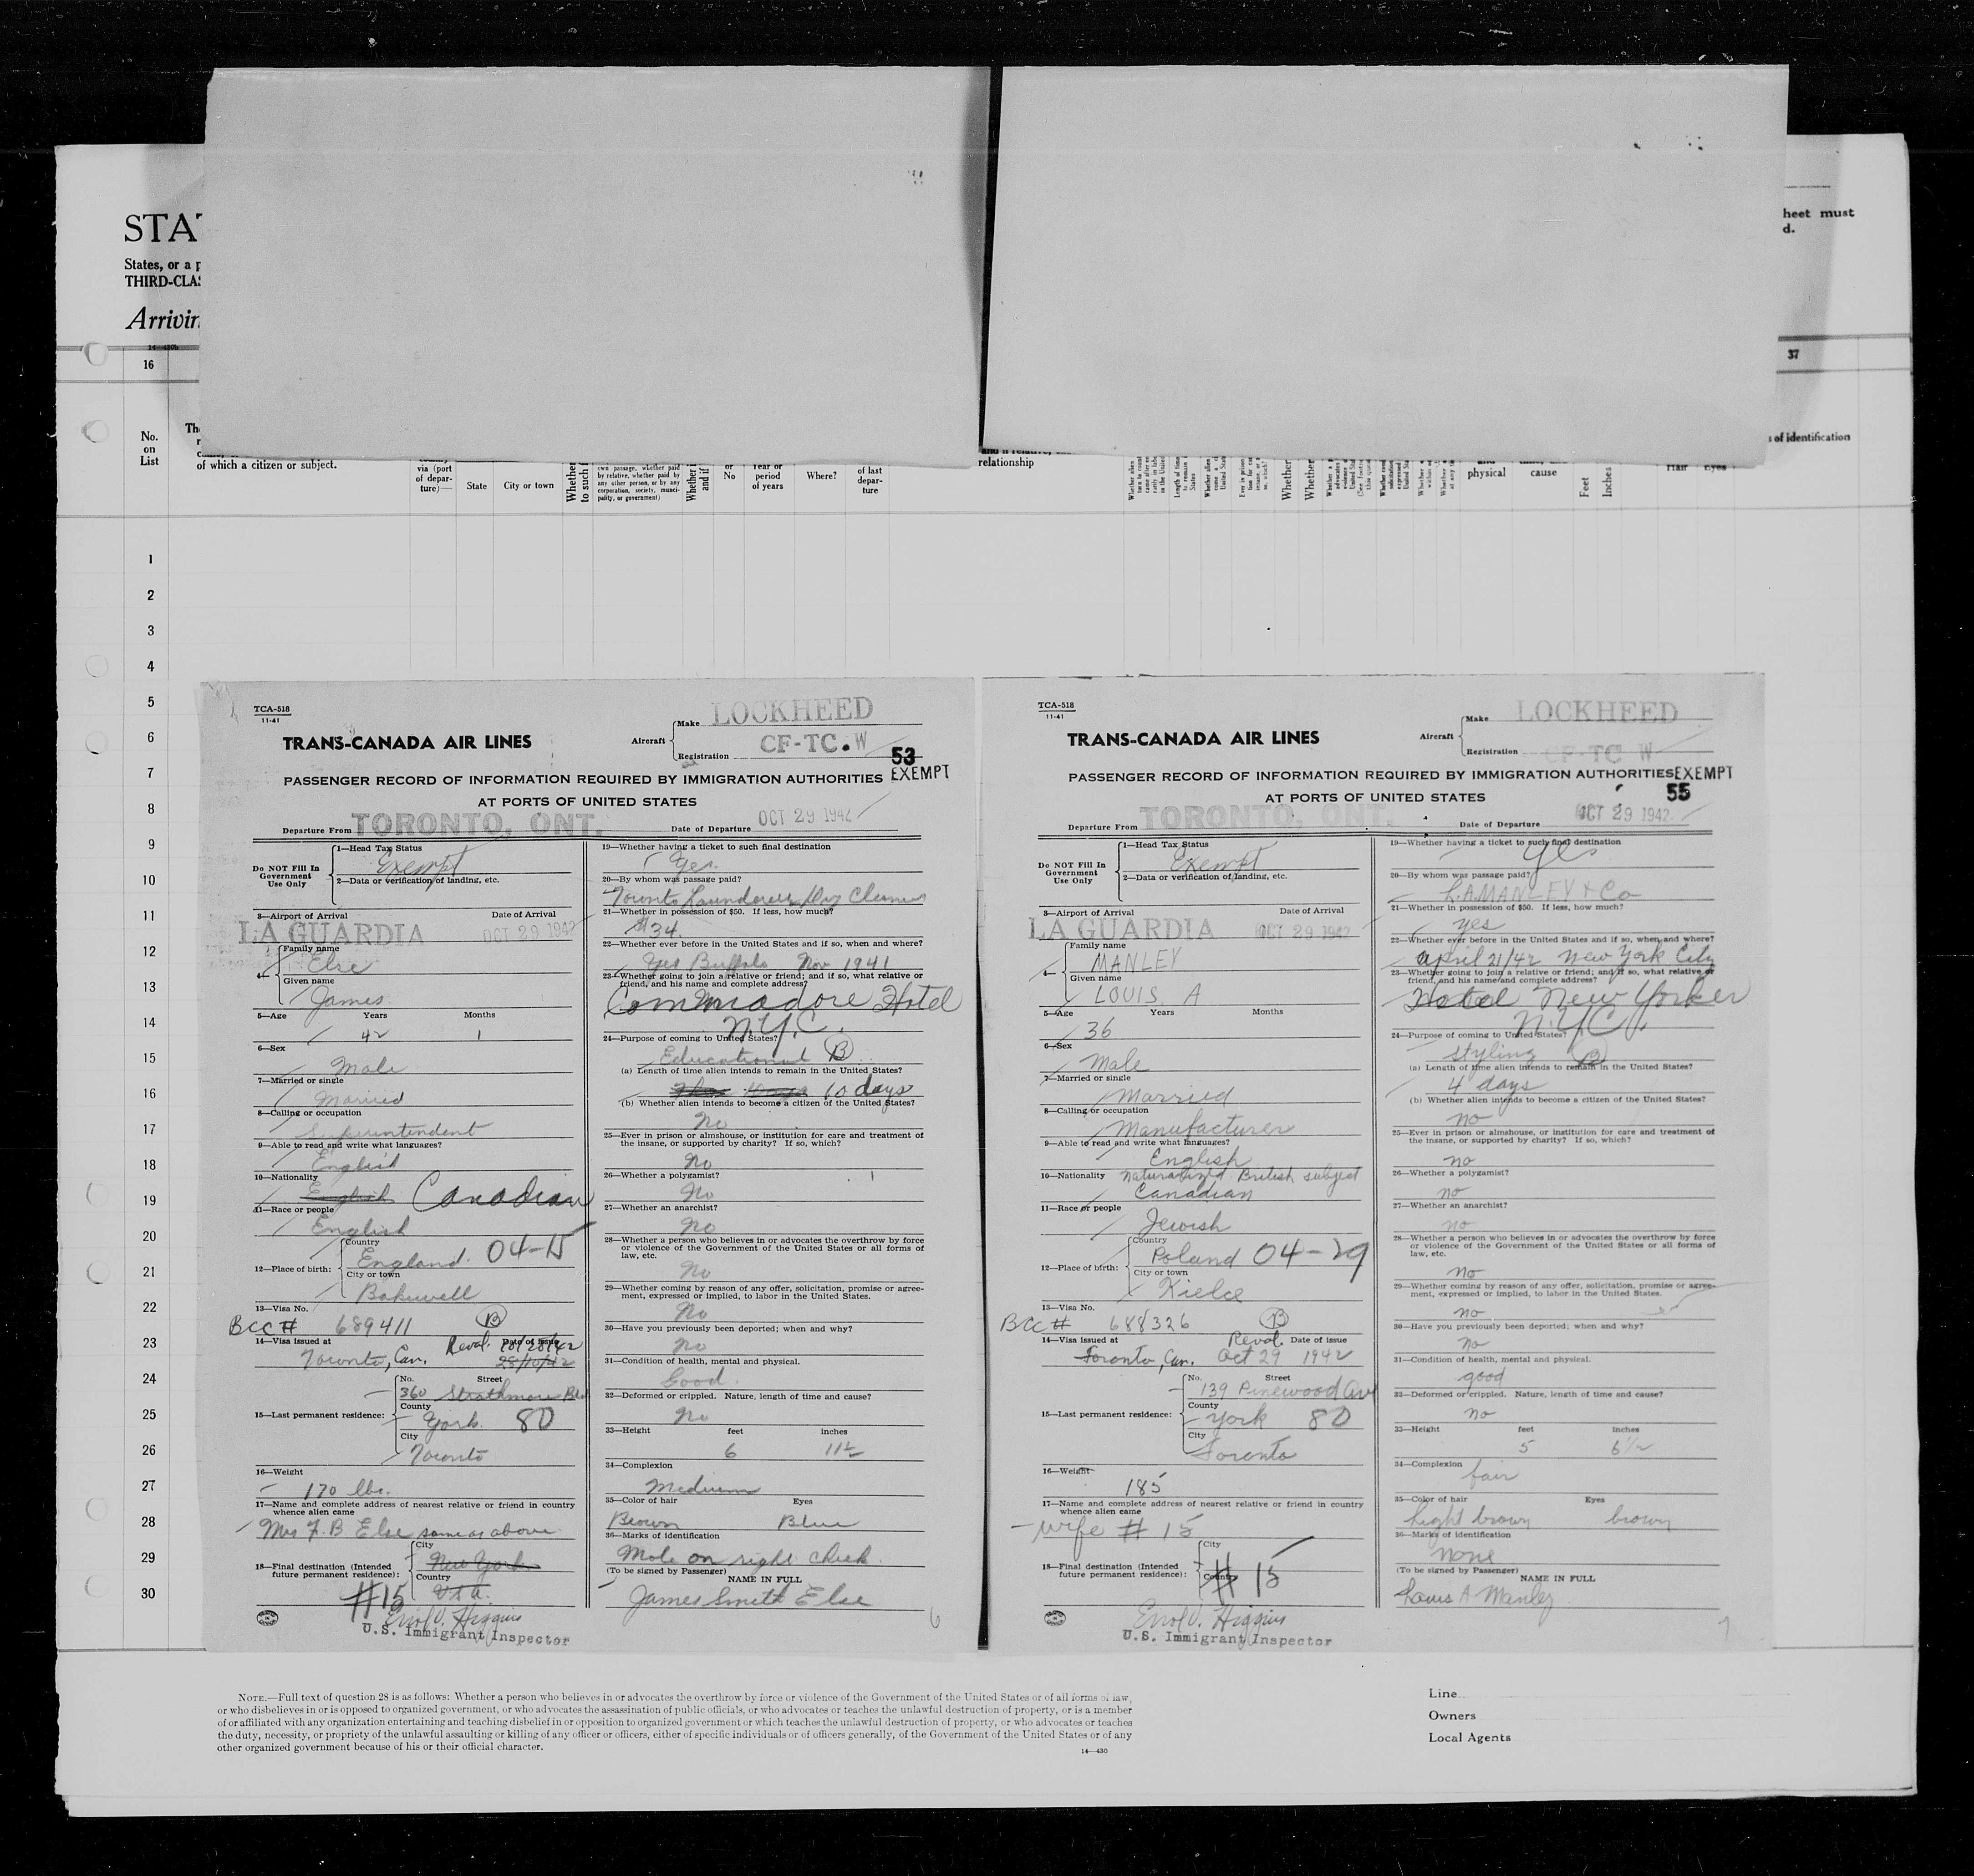 STAT
States, or a p
THIRD-CLAS
Arrivin
heet must
d.
14-430b
16
37
No.
on
List
of which a citizen or subject.
via (port
of depar-
ture)—
State
City or town
Whether
to such
own passage, whether paid
by relative, whether paid by
any other person, or by any
corporation, society, munici-
pality, or government)
Whether
and if
or
No
Year or
period
of years
Where?
of last
depar-
ture
relationship
physical
cause
Feet
Inches
of identification
Hair
Eyes
1
2
3
4
5
6
7
8
9
10
11
12
13
14
15
16
17
18
19
20
21
22
23
24
25
26
27
28
29
30
TCA-518
11-41
TRANS-CANADA AIR LINES
Aircraft
Make LOCKHEED
Registration CF-TC.W
53
EXEMPT
PASSENGER RECORD OF INFORMATION REQUIRED BY IMMIGRATION AUTHORITIES
AT PORTS OF UNITED STATES
Departure From TORONTO, ONT.
Date of Departure OCT 29 1942
Do NOT Fill In
Government
Use Only
1—Head Tax Status
Exempt
2—Data or verification of landing, etc.
3—Airport of Arrival Date of Arrival
LA GUARDIA OCT 29 1942
4—
Family name
Else
Given name
James
5—Age Years Months
42 1
6—Sex
Male
7—Married or single
Married
8—Calling or occupation
Superintendent
9—Able to read and write what languages?
English
10—Nationality
English Canadian
11—Race or people
English
12—Place of birth:
Country
England. 04-15
City or town
Bakewell
13—Visa No.
BCC # 689411 B
14—Visa issued at Date of Issue
Toronto, Can. Reval. 10/28/42
28/10/42
15—Last permanent residence:
No. Street
360 Strathmore Blvd
County
York. 80
City
Toronto
16—Weight
170 lbs.
17—Name and complete address of nearest relative or friend in country
whence alien came
Mrs F. B. Else same as above
18—Final destination (Intended
future permanent residence):
City
New York
Country
U S A.
#15
Errol V. Higgins
U.S. Immigrant Inspector
19—Whether having a ticket to such final destination
Yes.
20—By whom was passage paid?
Toronto Launderers Dry Cleaners
21—Whether in possession of $50. If less, how much?
$34.
22—Whether ever before in the United States and if so, when and where?
Yes Buffalo Nov 1941
23—Whether going to join a relative or friend; and if so, what relative or
friend, and his name and complete address?
Commadore Hotel
N.Y.C.
24—Purpose of coming to United States?
Educational B
(a) Length of time alien intends to remain in the United States?
10 days
(b) Whether alien intends to become a citizen of the United States?
No
25—Ever in prison or almshouse, or institution for care and treatment of
the insane, or supported by charity? If so, which?
No
26—Whether a polygamist?
No
27—Whether an anarchist?
No
28—Whether a person who believes in or advocates the overthrow by force
or violence of the Government of the United States or all forms of
law, etc.
No
29—Whether coming by reason of any offer, solicitation, promise or agree-
ment, expressed or implied, to labor in the United States.
No
30—Have you previously been deported; when and why?
No
31—Condition of health, mental and physical.
Good.
32—Deformed or crippled. Nature, length of time and cause?
No
33—Height feet inches
6 11½
34—Complexion
Medium
35—Color of hair Eyes
Brown Blue
36—Marks of identification
Mole on right cheek.
(To be signed by Passenger)
NAME IN FULL
James Smith Else
6
TCA-518
11-41
TRANS-CANADA AIR LINES
Aircraft
Make LOCKHEED
Registration CF-TC W
PASSENGER RECORD OF INFORMATION REQUIRED BY IMMIGRATION AUTHORITIES
EXEMPT
55
AT PORTS OF UNITED STATES
Departure From TORONTO, ONT.
Date of Departure OCT 29 1942
Do NOT Fill In
Government
Use Only
1—Head Tax Status
Exempt
2—Data or verification of landing, etc.
3—Airport of Arrival Date of Arrival
LA GUARDIA OCT 29 1942
4—
Family name
MANLEY
Given name
LOUIS. A
5—Age Years Months
36
6—Sex
Male
7—Married or single
Married
8—Calling or occupation
Manufacturer
9—Able to read and write what languages?
English
10—Nationality Naturalized British subject
Canadian
11—Race or people
Jewish
12—Place of birth:
Country
Poland 04-29
City or town
Kielce
13—Visa No.
BCC # 688326 B
14—Visa issued at Reval. Date of issue
Toronto, Can. Oct 29 1942
15—Last permanent residence:
No. Street
139 Pinewood Ave
County
York 80
City
Toronto
16—Weight
185
17—Name and complete address of nearest relative or friend in country
whence alien came
wife # 15
18—Final destination (Intended
future permanent residence):
City
Country
# 15
Errol V. Higgins
U.S. Immigrant Inspector
19—Whether having a ticket to such final destination
yes
20—By whom was passage paid?
L.A.MANLEY & Co
21—Whether in possession of $50. If less, how much?
yes
22—Whether ever before in the United States and if so, when and where?
April 21/42 New York City
23—Whether going to join a relative or friend; and if so, what relative or
friend, and his name and complete address?
Hotel New Yorker
N.Y.C.
24—Purpose of coming to United States?
styling B
(a) Length of time alien intends to remain in the United States?
4 days
(b) Whether alien intends to become a citizen of the United States?
no
25—Ever in prison or almshouse, or institution for care and treatment of
the insane, or supported by charity? If so, which?
no
26—Whether a polygamist?
no
27—Whether an anarchist?
no
28—Whether a person who believes in or advocates the overthrow by force
or violence of the Government of the United States or all forms of
law, etc.
no
29—Whether coming by reason of any offer, solicitation, promise or agree-
ment, expressed or implied, to labor in the United States.
no
30—Have you previously been deported; when and why?
no
31—Condition of health, mental and physical.
good
32—Deformed or crippled. Nature, length of time and cause?
no
33—Height feet inches
5 6½
34—Complexion
fair
35—Color of hair Eyes
Light brown brown
36—Marks of identification
none
(To be signed by Passenger)
NAME IN FULL
Louis A Manley
7
NOTE.—Full text of question 28 is as follows: Whether a person who believes in or advocates the overthrow by force or violence of the Government of the United States or of all forms of law,
or who disbelieves in or is opposed to organized government, or who advocates the assassination of public officials, or who advocates or teaches the unlawful destruction of property, or is a member
of or affiliated with any organization entertaining and teaching disbelief in or opposition to organized government or which teaches the unlawful destruction of property, or who advocates or teaches
the duty, necessity, or propriety of the unlawful assaulting or killing of any officer or officers, either of specific individuals or of officers generally, of the Government of the United States or of any
other organized government because of his or their official character.
14—430
Line
Owners
Local Agents